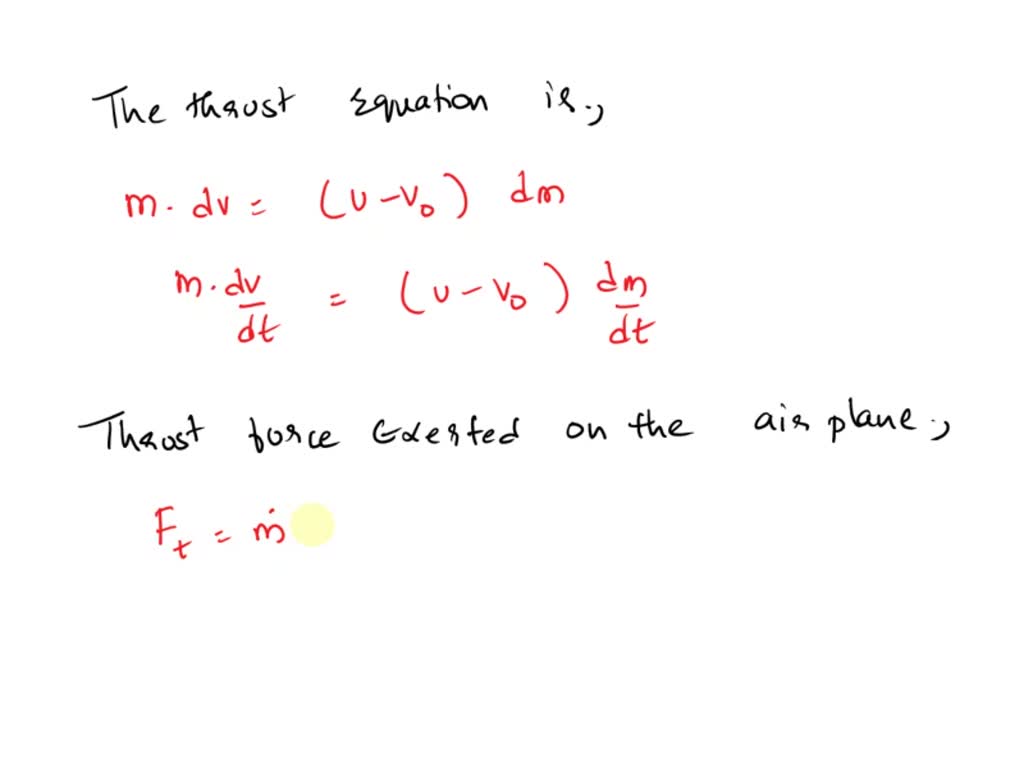 The thrust Equation is.,
m. dv = (u - v₀) dm
m. dv/dt = (u - v₀) dm/dt
Thrust force Exerted on the air plane.,
Fₜ = ṁ